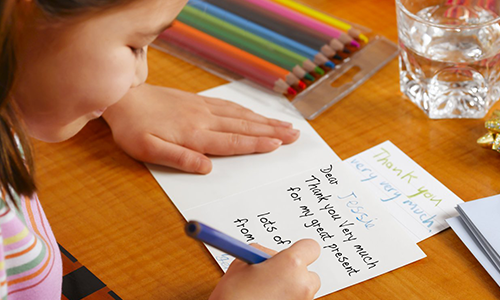 Dear Jessie
Thank you Very Much
for my great present
lots of
from
Thank you
very very much